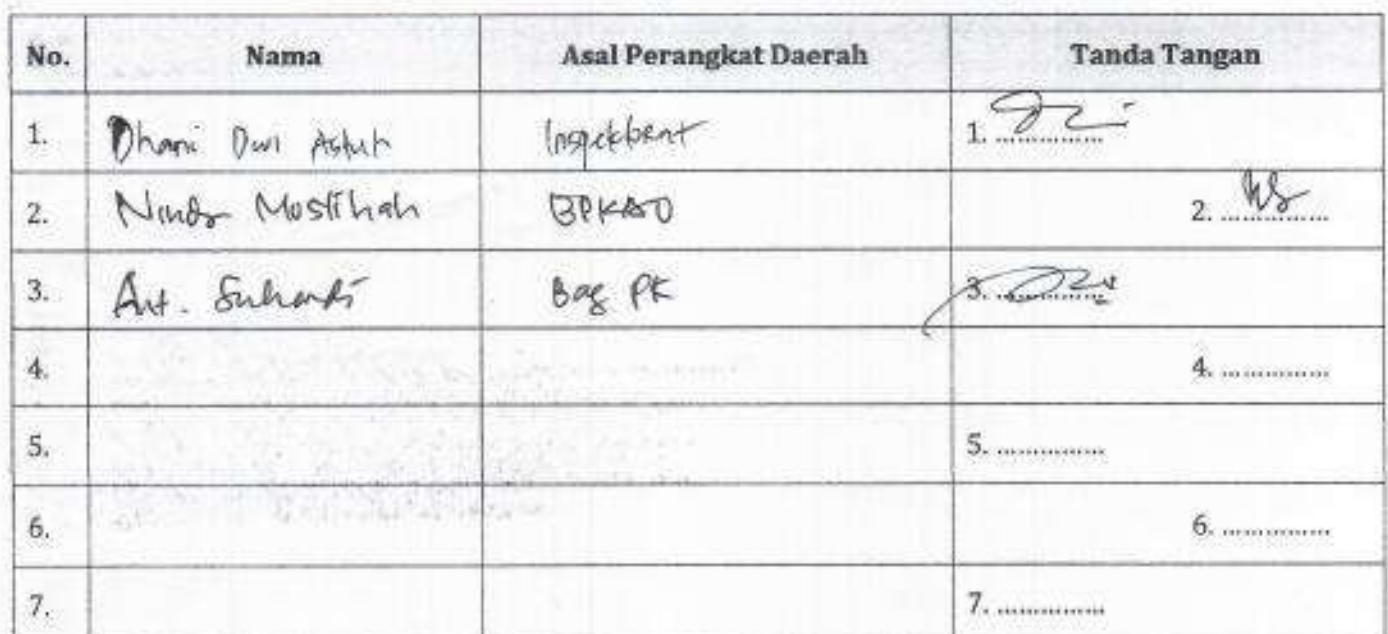 No. Nama Asal Perangkat Daerah Tanda Tangan
1. Dhani Dwi Astuti Inspektorat 1. ...............
2. Muslihah BPKAD 2. ...............
3. Ant. Suhardi Bag PK 3. ...............
4. 4. ...............
5. 5. ...............
6. 6. ...............
7. 7. ...............